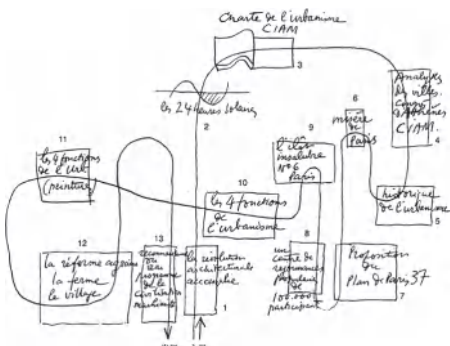 Charte de l'urbanisme
CIAM
3
les 24 heures solaires
2
Analyse
des villes.
Congrès
d'Athènes
CIAM.
4
6
misère
de
Paris
historique
de l'urbanisme
5
9
l'îlot
insalubre
No 6
Paris
11
les 4 fonctions
de l'Urb
(peinture)
10
les 4 fonctions
de
l'urbanisme
12
la réforme agraire
la ferme
le village
13
programme
de la
civilisation
machiniste
la révolution
architecturale
accomplie
1
8
un
centre de
réjouissances
populaires
de
100.000
participants
Proposition
du
Plan de Paris 37
7